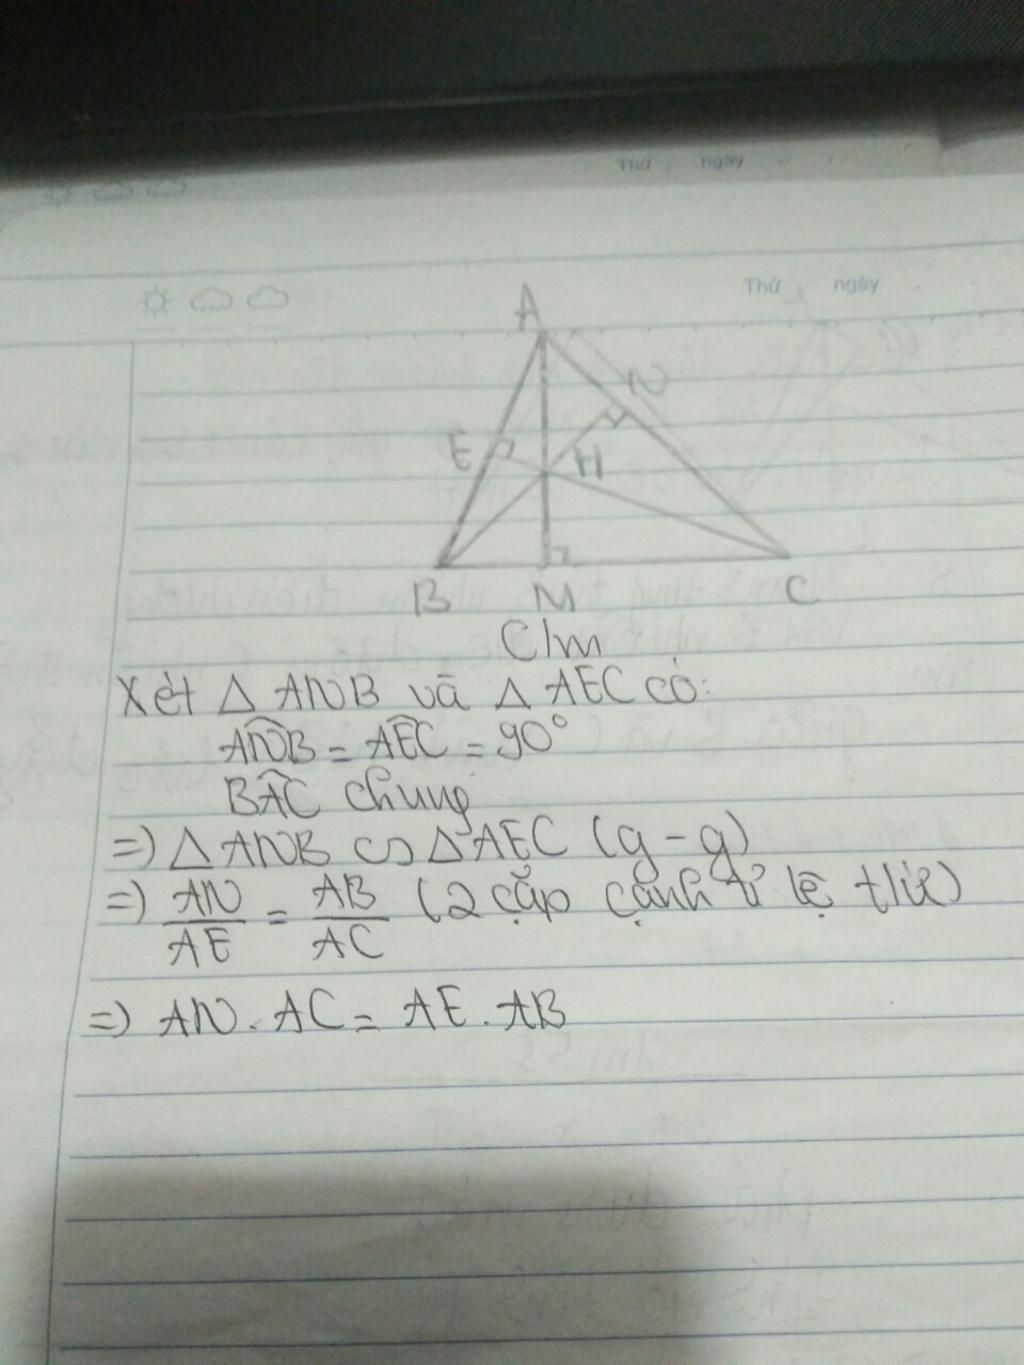 Thứ ngày
Thứ ngày
A
N
E
H
B M C
C/m
Xét △ ANB và △ AEC có:
ANB = AEC = 90°
BAC chung
=) △ ANB ∽ △ AEC (g-g)
=) AN/AE = AB/AC (2 cặp cạnh tỉ lệ t/ứ)
=) AN . AC = AE . AB